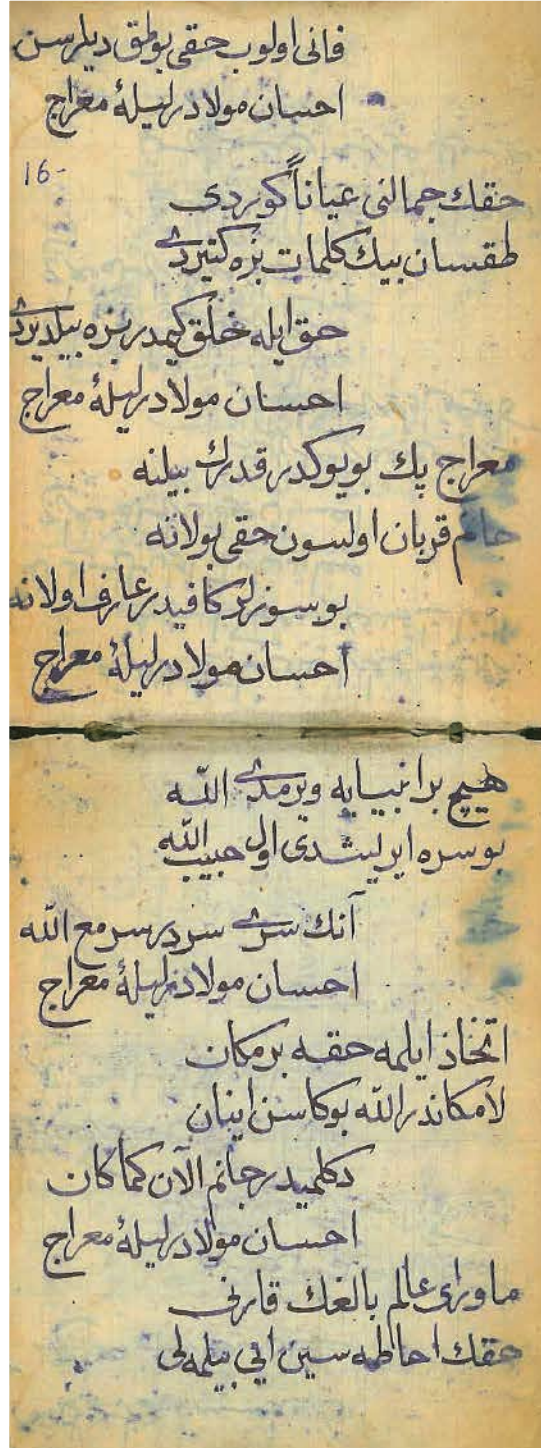 فانی اولوب حقی بولمق دیلرسن
احسان مولادر لیلهٔ معراج
16-
حقك جمالنی عیاناً كوردی
طقسان بیك كلمات بزه كتیردی
حق ایله خلق كیمدر بزه بیلدیردی
احسان مولادر لیلهٔ معراج
معراج پك بویوكدر قدرك بیلنه
جانم قربان اولسون حقی بولانه
بو سوزلر كافیدر عارف اولانه
احسان مولادر لیلهٔ معراج
هیچ بر انبیایه ویرمدی اللّه
بو سره ایریشدی اول حبیب اللّه
آنك سری سردر سر مع اللّه
احسان مولادر لیلهٔ معراج
اتخاذ ایلمه حقه بر مكان
لامكاندر اللّه بوكا سن اینان
دكلمیدر جانم الآن كما كان
احسان مولادر لیلهٔ معراج
ماورای عالم بالغك
حقك احاطه سین ایی بیلمه لی